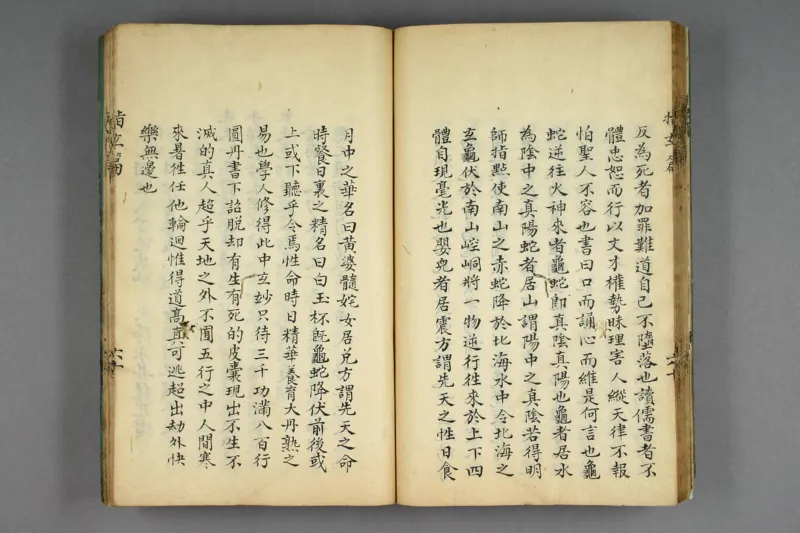 反為死者加罪難道自己不墮落也讀儒書者不
體忠恕而行以文才權勢昧理害人縱天律不報
怕聖人不容也書曰口而誦心而維是何言也龜
蛇逆往火神來者龜蛇即真陰真陽也龜者居水
為陰中之真陽蛇者居山謂陽中之真陰若得明
師指點使南山之赤蛇降於北海水中令北海之
玄龜伏於南山崆峒將一物逆行往來於上下四
體自現毫光也嬰兒者居震方謂先天之性日食
月中之華名曰黃婆髓姹女居兌方謂先天之命
時餐日裏之精名曰白玉杯旣龜蛇降伏前後或
上或下聽乎令焉性命時日精華養育大丹熟之
易也學人修得此中玄妙只待三千功滿八百行
圓丹書下詔脫却有生有死的皮囊現出不生不
滅的真人超乎天地之外不囿五行之中人間寒
來暑往任他輪迴惟得道高真可逃超出劫外快
樂無邊也